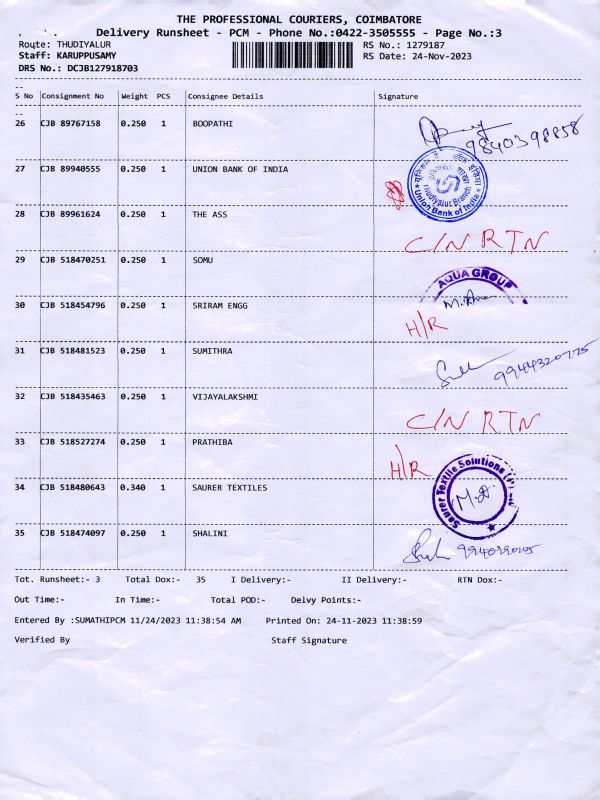 THE PROFESSIONAL COURIERS, COIMBATORE
Delivery Runsheet - PCM - Phone No.:0422-3505555 - Page No.:3
Route: THUDIYALUR RS No.: 1279187
Staff: KARUPPUSAMY RS Date: 24-Nov-2023
DRS No.: DCJB127918703
S No Consignment No Weight PCS Consignee Details Signature
26 CJB 89767158 0.250 1 BOOPATHI
9840398858
27 CJB 89940555 0.250 1 UNION BANK OF INDIA
Thudiyalur Branch
Union Bank of India
28 CJB 89961624 0.250 1 THE ASS C/N RTN
29 CJB 518470251 0.250 1 SOMU AQUA GROUP
30 CJB 518454796 0.250 1 SRIRAM ENGG H/R
31 CJB 518481523 0.250 1 SUMITHRA 9944320775
32 CJB 518435463 0.250 1 VIJAYALAKSHMI C/N RTN
33 CJB 518527274 0.250 1 PRATHIBA H/R
34 CJB 518480643 0.340 1 SAURER TEXTILES Saurer Textile Solutions (P)
35 CJB 518474097 0.250 1 SHALINI
Tot. Runsheet:- 3 Total Dox:- 35 I Delivery:- II Delivery:- RTN Dox:-
Out Time:- In Time:- Total POD:- Delvy Points:-
Entered By :SUMATHIPCM 11/24/2023 11:38:54 AM Printed On: 24-11-2023 11:38:59
Verified By Staff Signature